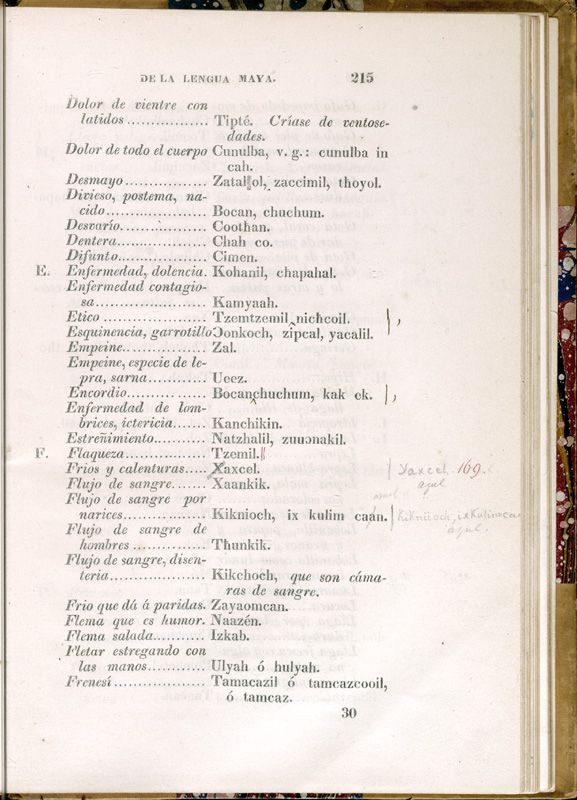 DE LA LENGUA MAYA. 215
Dolor de vientre con
latidos................ Tipté. Críase de ventose-
dades.
Dolor de todo el cuerpo Cunulba, v. g.: cunulba in
cah.
Desmayo................. Zatalol, zaccimil, thoyol.
Divieso, postema, na-
cido.................... Bocan, chuchum.
Desvarío................ Coothan.
Dentera................. Chah co.
Difunto................. Cimen.
E. Enfermedad, dolencia. Kohanil, chapahal.
Enfermedad contagio-
sa...................... Kamyaah.
Etico .................. Tzemtzemil nichcoil. ,
Esquinencia, garrotillo Ɔonkoch, zipcal, yacalil.
Empeine................. Zal.
Empeine, especie de le-
pra, sarna............ Ueez.
Encordio................ Bocanchuchum, kak ek. ,
Enfermedad de lom-
brices, ictericia....... Kanchikin.
Estreñimiento........... Natzhalil, zuuɔnakil.
F. Flaqueza................ Tzemil.
Frios y calenturas..... Xaxcel. Yaxcel. 169.
Flujo de sangre....... Xaankik. azul
Flujo de sangre por
narices................. Kiknioch, ix kulim caan.
Flujo de sangre de azul.
hombres ............... Thunkik.
Flujo de sangre, disen-
teria................... Kikchoch, que son cáma-
ras de sangre.
Frio que dá á paridas. Zayaomcan.
Flema que es humor. Naazén.
Flema salada........... Izkab.
Fletar estregando con
las manos............. Ulyah ó hulyah.
Frenesí................. Tamacazil ó tamcazcooil,
ó tamcaz.
30